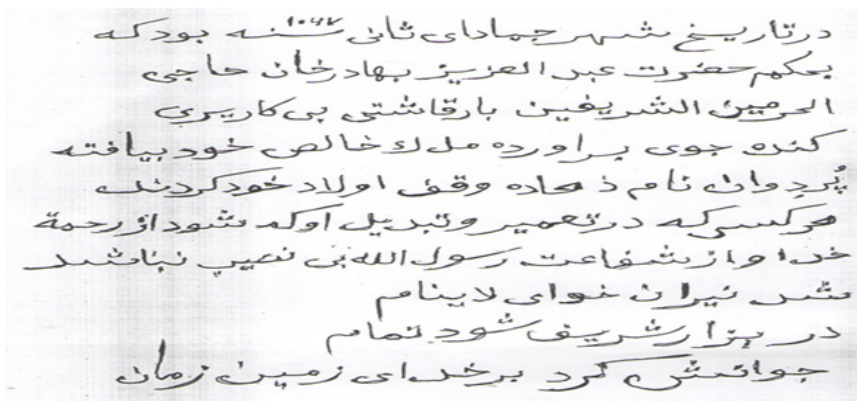 درتاریخ شهر جمادای ثانی سنه ۱۰۶۷ بودکه
بحکم حضرت عبد العزیز بهادرخان حاجی
الحرمین الشریفین بارقاشتی بی کاریزی
کنده جوی براورده ملك خالص خود بیافته
پُردوان نام ذهاده وقف اولاد خود کردند
هرکسی که درتعمیر وتبدیل اوکم شود از رحمة
خدا واز شفاعت رسول الله بی نصیب نباشد
شد نیران خوای لاینام
در بزار شریف شود تمام
جوانش کرد برخدای زمین زمان